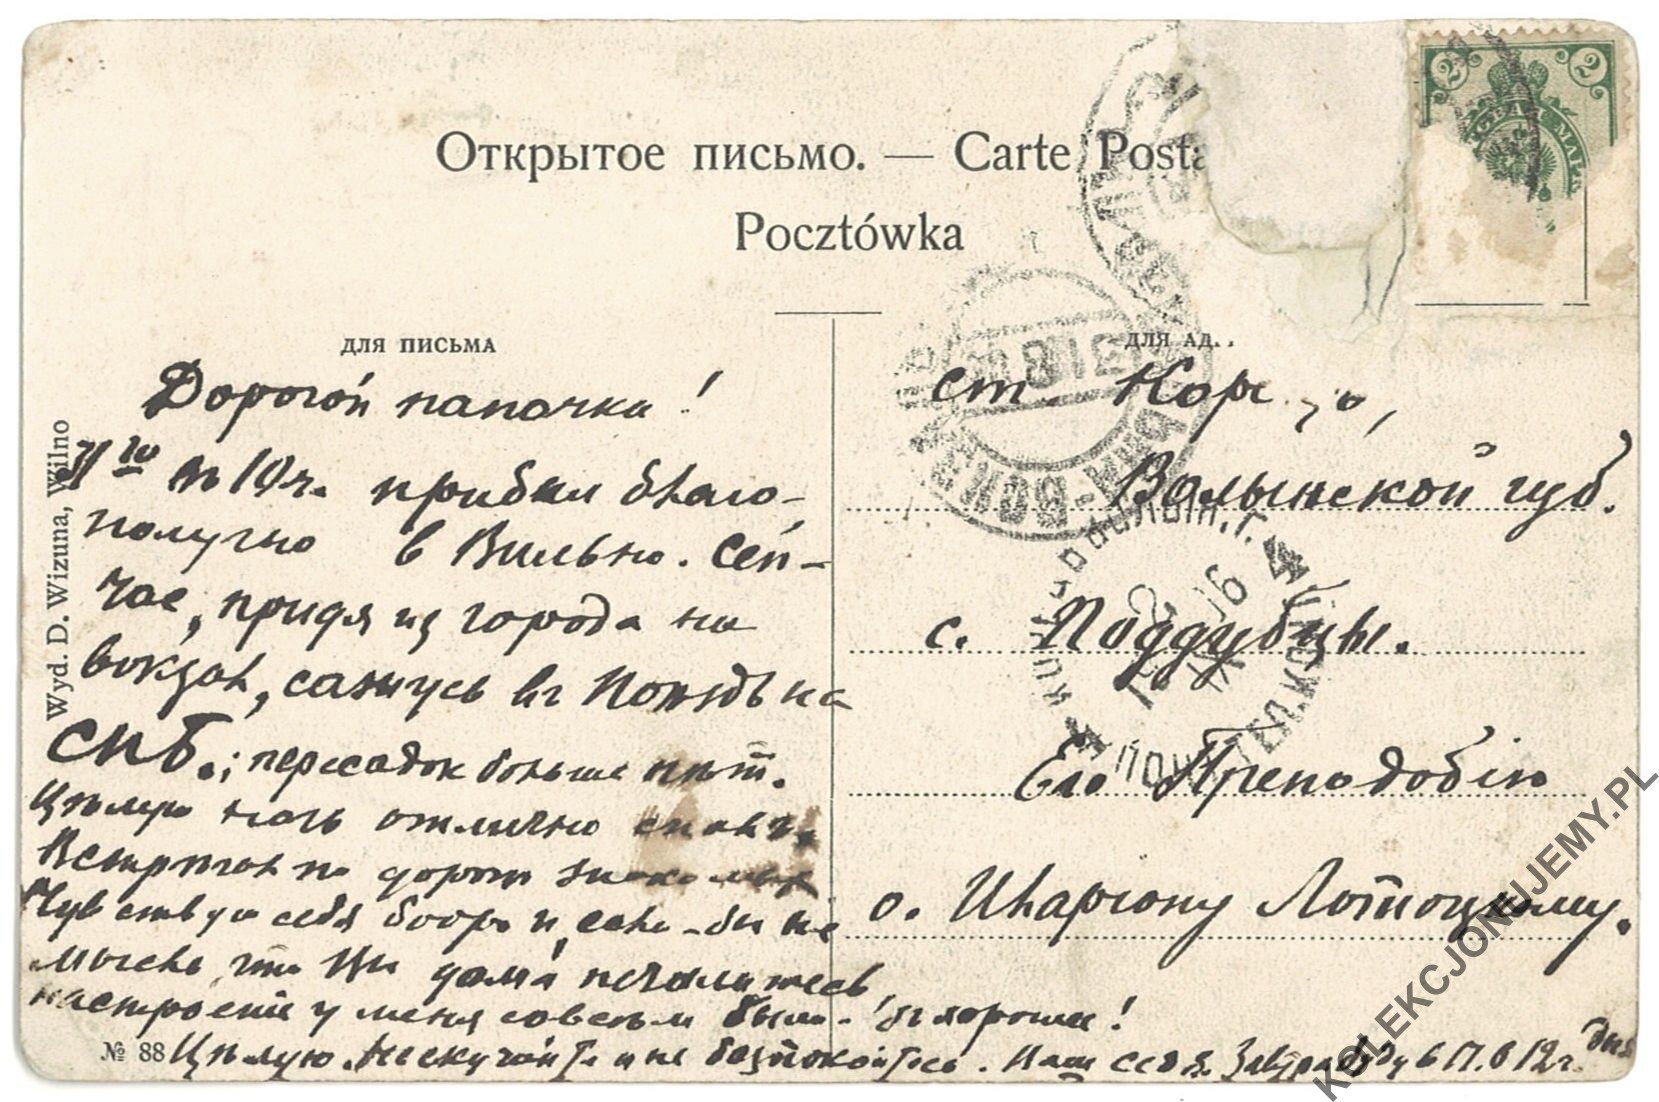 Открытое письмо. — Carte Posta
Pocztówka
для письма
для ад
Wyd. D. Wizuna, Wilno
Дорогой папочка!
31го в 10 ч. прибыл благо-
получно в Вильно. Сей-
час, придя из города на
вокзал, сажусь въ поѣздъ на
СПБ.; пересадок больше нѣт.
Цѣлую ночь отлично спалъ.
Встрѣчал по дорогѣ знакомых
Чувствую себя бодро и, если-бы не
мысль, что Вы дома печалитесь,
настроение у меня совсѣм было-бы хорошее!
№ 88
Цѣлую. Не скучайте и не безпокойтесь. Завтра буду в П. в 12 ч. дня
ст.
Волынской губ.
с. Поддубцы.
Его Преподобію
о. Иларіону Лотоцкому.
2
2
МАРК
ВОКЗ
16
4
KOLEKCJONUJEMY.PL